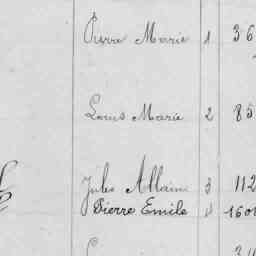 Pierre Marie 1 36
Louis Marie 2 85
Jules Allain 3 112
Pierre Emile 4 160